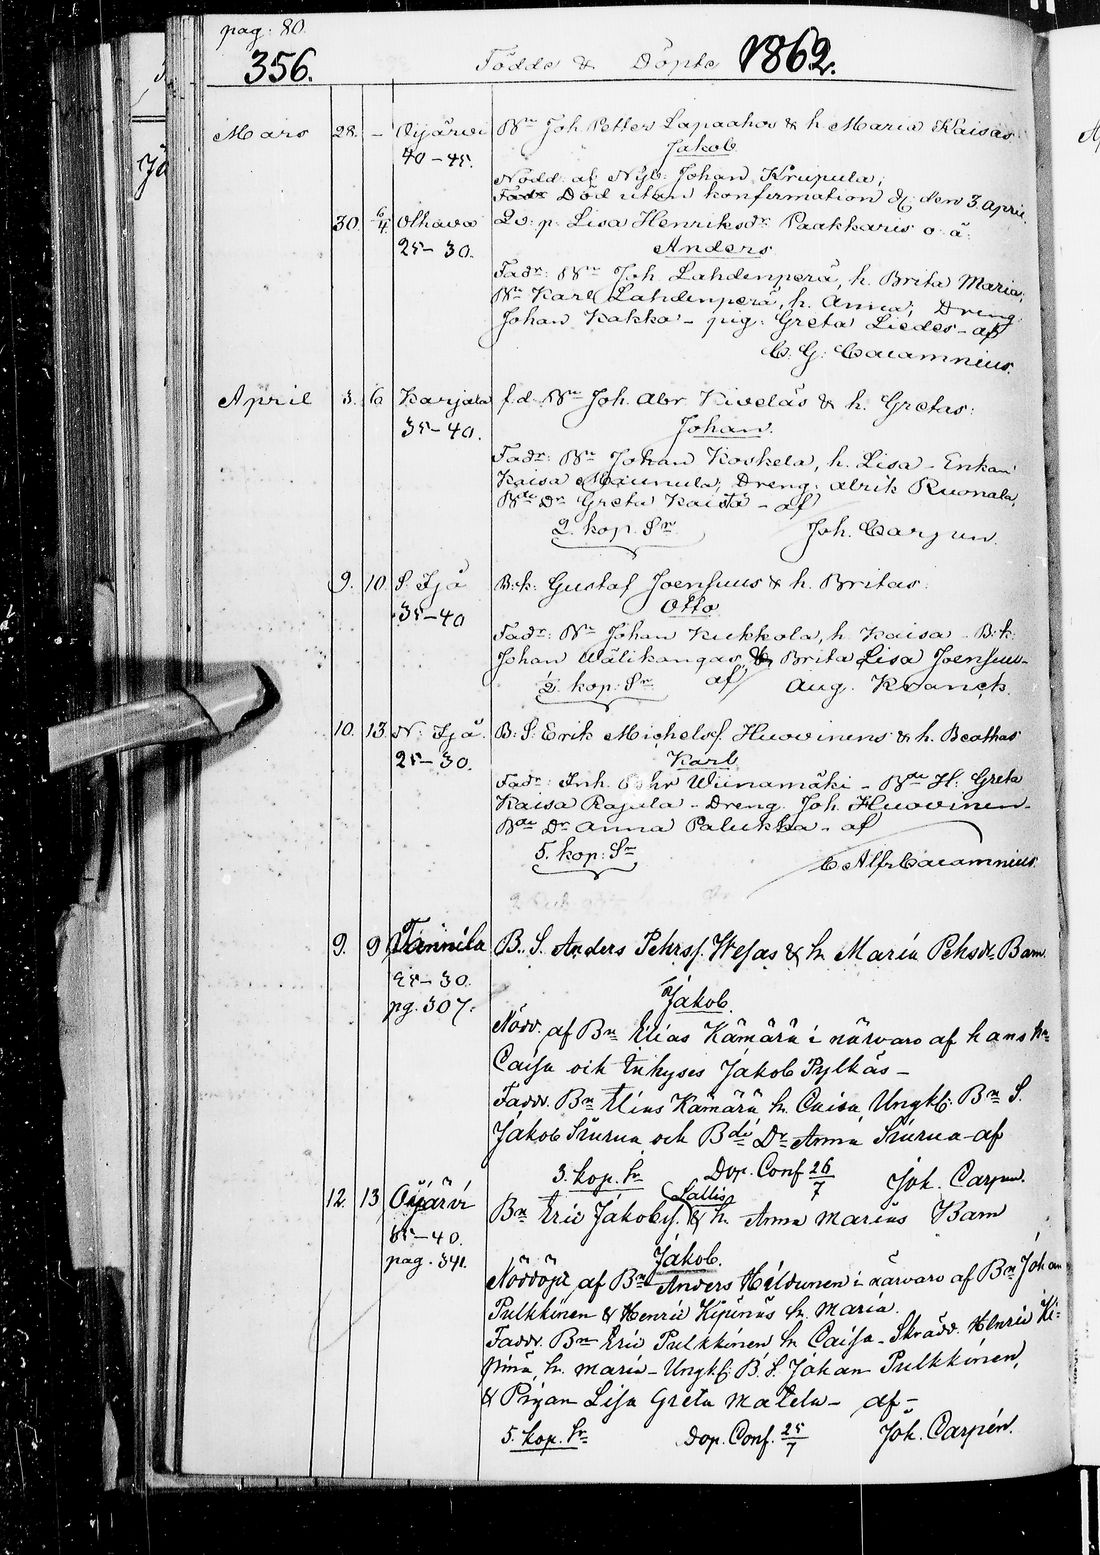 pag: 80.
356. Födde & Döpte 1862.
Mars 28. – Oijärvi Bn Joh. Petter Lapaahos & h. Maria Kaisas:
40–45. Jakob
Nödd. af Nyb: Johan Krupula;
Död utan konfirmation d. den 3. April.
30. 6/4 Olhava Qv: p. Lisa Henriksdr. Paakkaris o. ä.
25–30. Anders
Fadr: Bn Joh. Lahdenperä, h. Brita Maria;
Bn Karl Lahdenperä, h. Anna; Dreng.
Johan Kakko – pig. Greta Liedes – af
C. G. Calamnius.
April 3. 6 Karjala f.d. Bn Joh. Abr. Kivelás & h. Gretas:
35–40. Johan.
Fadr: Bn Johan Koskela, h. Lisa – Enkan
Kaisa Maunula, Dreng. Ulrik Ruonala,
Bde Dr Greta Kaisa – af
2. kop. Sr Joh. Carpen.
9. 10. S. Ijå B:k: Gustaf Joensuus & h. Britas:
35–40 Otto
Fadr: Bn Johan Kukkola, h. Kaisa – B:k:
Johan Wälikangas & Brita Lisa Joensuu –
2. kop: Sr af Aug. Kranck.
10. 13. N. Ijå. B: S: Erik Michelsf. Huovinens & h. Beathas
25–30. Karl
Fadr: Inh. Pehr Wiinamäki – Bde H: Greta
Kaisa Rajala – Dreng. Joh. Huovinen –
Bde Dr Anna Palukka – af
5. kop: Sr C Alfr Calamnius.
9. 9 Tannila B. S. Anders Pehrsf. Wesas & hn Maria Pehsdr Barn
25–30. Jakob.
pg. 307.
Nödd. af Bn Elias Kämärä i närvaro af hans hn
Caisa och Inhyses Jakob Pylkäs –
Faddr. Bn Elias Kämärä hn Caisa, Ungkl: Bn S.
Jakob Siurua och Bde Dr Anna Siurua – af
3. kop. Sr Dop. Conf 26/7 Joh. Carpen.
12. 13 Oijärvi Bn Eric Jakobsf. Lallis & hn Anna Marias Barn
35–40. Jakob.
pag. 341.
Nöddöpt af Bn Anders Hildunen i närvaro af Bn Johan
Pulkkinen & Henric Kipinäs hn Maria.
Faddr. Bn Eric Pulkkinen hn Caisa – Skrädd. Henric Ki:
pinä, hn Maria – Ungkl: B. S. Johan Pulkkinen,
& Pigan Lisa Greta Matela – af –
5. kop. Sr Dop. Conf. 25/7 Joh. Carpén.